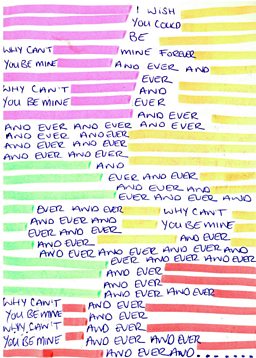 I WISH
YOU COULD
BE
WHY CAN'T MINE FOREVER
YOU BE MINE AND EVER AND
EVER
WHY CAN'T AND
YOU BE MINE EVER
AND EVER
AND EVER AND EVER AND EVER
AND EVER AND EVER
AND EVER AND EVER
AND EVER AND EVER
AND
EVER AND EVER AND
EVER AND EVER AND
AND EVER AND EVER AND
EVER AND EVER WHY CAN'T
AND EVER AND YOU BE MINE
EVER AND EVER
AND EVER AND EVER
AND EVER AND EVER AND EVER AND
EVER AND EVER AND EVER
AND EVER
AND EVER
AND EVER AND EVER
WHY CAN'T AND EVER
YOU BE MINE AND EVER
WHY CAN'T AND EVER
YOU BE MINE AND EVER AND EVER
AND EVER AND........